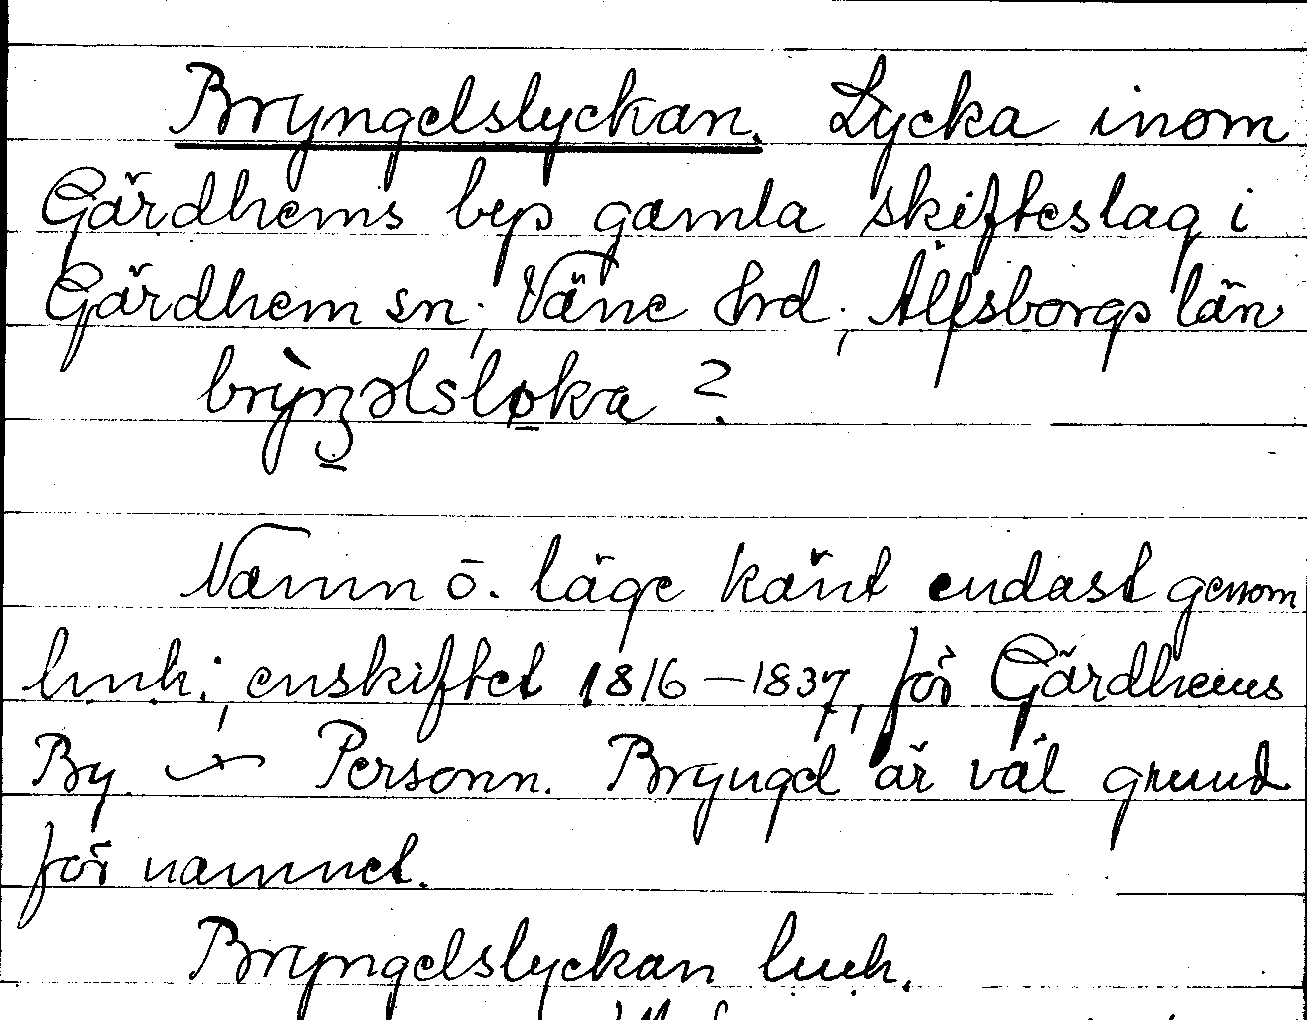 Bryngelslyckan. Lycka inom
Gärdhems bys gamla skifteslag i
Gärdhem sn; Väne hrd; Älfsborgs län
?
Namn o. läge känt endast genom
lmh; enskiftet 1816–1837, för Gärdhems
By. Personn. Bryngel är väl grund
för namnet.
Bryngelslyckan lmh.